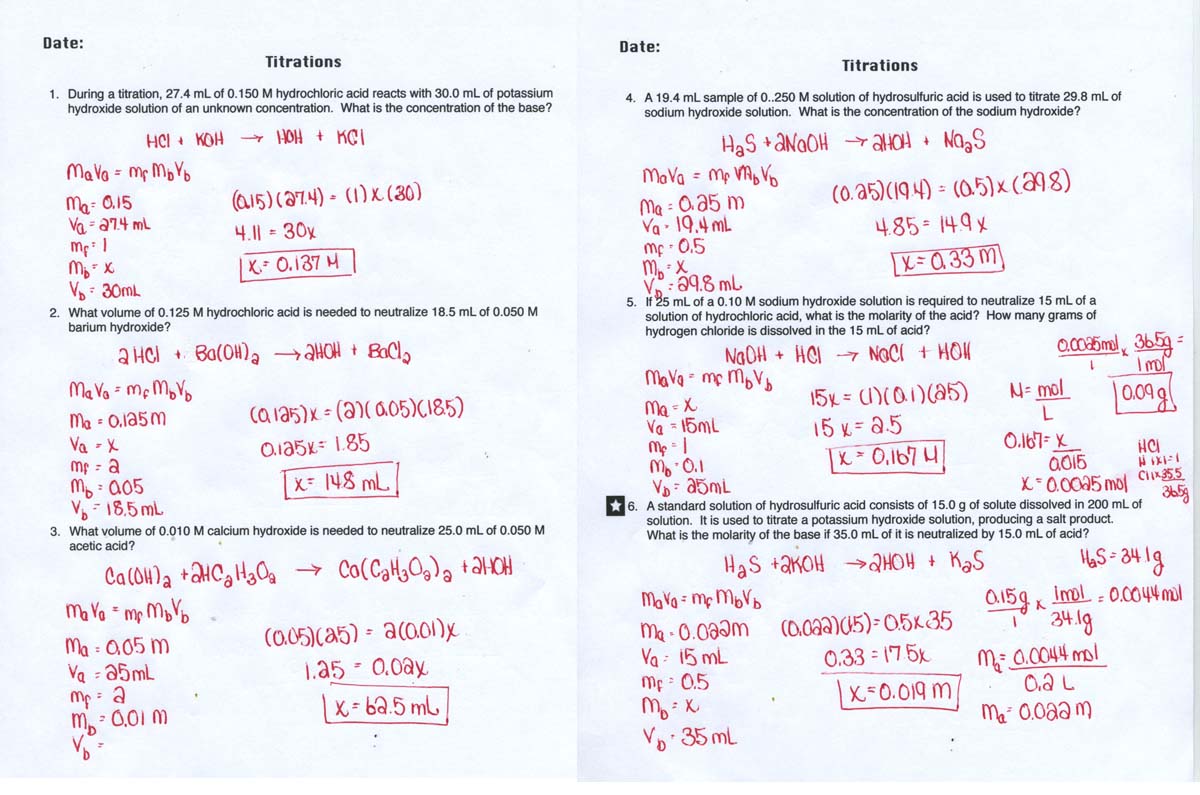 Date:
Titrations
1. During a titration, 27.4 mL of 0.150 M hydrochloric acid reacts with 30.0 mL of potassium
hydroxide solution of an unknown concentration. What is the concentration of the base?
HCl + KOH → HOH + KCl
MaVa = mf MbVb
Ma = 0.15
Va = 27.4 mL
mf = 1
Mb = x
Vb = 30mL
(0.15)(27.4) = (1)x(30)
4.11 = 30x
x = 0.137 M
2. What volume of 0.125 M hydrochloric acid is needed to neutralize 18.5 mL of 0.050 M
barium hydroxide?
2HCl + Ba(OH)2 → 2HOH + BaCl2
MaVa = mf MbVb
Ma = 0.125m
Va = x
mf = 2
Mb = 0.05
Vb = 18.5mL
(0.125)x = (2)(0.05)(18.5)
0.125x = 1.85
x = 14.8 mL
3. What volume of 0.010 M calcium hydroxide is needed to neutralize 25.0 mL of 0.050 M
acetic acid?
Ca(OH)2 + 2HC2H3O2 → Ca(C2H3O2)2 + 2HOH
MaVa = mf MbVb
Ma = 0.05 m
Va = 25mL
mf = 2
Mb = 0.01 m
Vb =
(0.05)(25) = 2(0.01)x
1.25 = 0.02x
x = 62.5 mL
Date:
Titrations
4. A 19.4 mL sample of 0..250 M solution of hydrosulfuric acid is used to titrate 29.8 mL of
sodium hydroxide solution. What is the concentration of the sodium hydroxide?
H2S + 2NaOH → 2HOH + Na2S
MaVa = mf MbVb
Ma = 0.25 m
Va = 19.4 mL
mf = 0.5
Mb = x
Vb = 29.8 mL
(0.25)(19.4) = (0.5)x(29.8)
4.85 = 14.9x
x = 0.33 m
5. If 25 mL of a 0.10 M sodium hydroxide solution is required to neutralize 15 mL of a
solution of hydrochloric acid, what is the molarity of the acid? How many grams of
hydrogen chloride is dissolved in the 15 mL of acid?
NaOH + HCl → NaCl + HOH
MaVa = mf MbVb
Ma = x
Va = 15mL
mf = 1
Mb = 0.1
Vb = 25mL
15x = (1)(0.1)(25)
15x = 2.5
x = 0.167 M
M = mol
L
0.167 = x
0.015
x = 0.0025 mol
0.0025mol x 36.5g =
1 1 mol
0.09g
HCl
H 1x1=1
Cl 1x35.5
36.5g
6. A standard solution of hydrosulfuric acid consists of 15.0 g of solute dissolved in 200 mL of
solution. It is used to titrate a potassium hydroxide solution, producing a salt product.
What is the molarity of the base if 35.0 mL of it is neutralized by 15.0 mL of acid?
H2S + 2KOH → 2HOH + K2S
H2S = 34.1g
MaVa = mf MbVb
Ma = 0.022m
Va = 15 mL
mf = 0.5
Mb = x
Vb = 35 mL
(0.022)(15) = 0.5x35
0.33 = 17.5x
x = 0.019 m
0.15g x 1mol = 0.0044 mol
1 34.1g
Ma = 0.0044 mol
0.2 L
Ma = 0.022 m